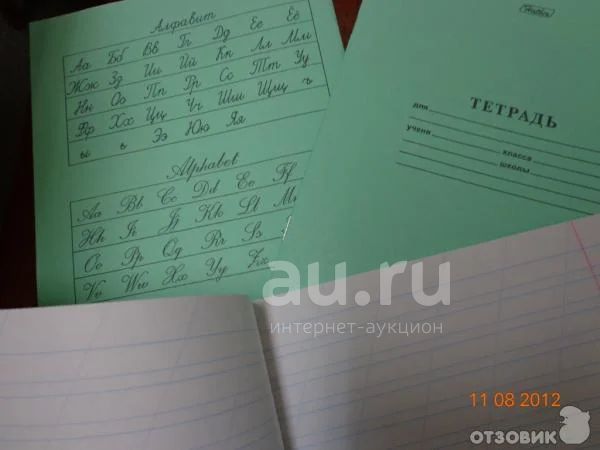 Алфавит
Аа Бб Вв Гг Дд Ее Ёё
Жж Зз Ии Йй Кк Лл Мм
Нн Оо Пп Рр Сс Тт Уу
Фф Хх Цц Чч Шш Щщ ъ
ы ь Ээ Юю Яя
Alphabet
Aa Bb Cc Dd Ee Ff
Hh Ii Jj Kk Ll M
Oo Pp Qq Rr Ss
Vv Ww Xx Yy Zz
Hatber
ТЕТРАДЬ
для
учени
класса
школы
au.ru
интернет-аукцион
11 08 2012
ОТЗОВИК